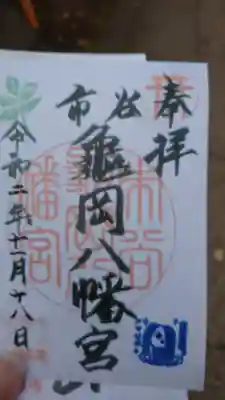 奉拝
市谷
亀岡八幡宮
令和二年十一月十八日